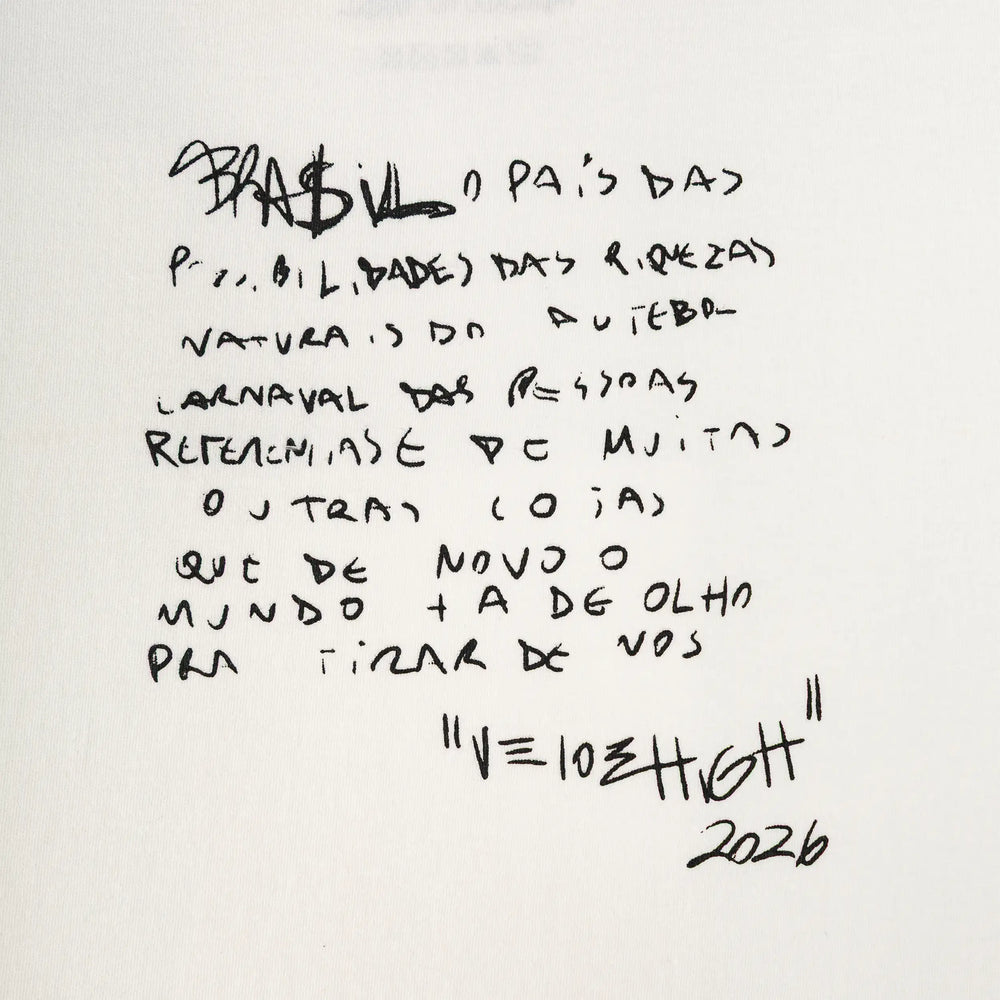 BRA$iL O PAíS DAS
POSSiBiLiDADES DAS RiQUEZAS
NATURAiS DO FUTEBOL
CARNAVAL DAS PESSOAS
REFERENCIAS E DE MUiTAS
OUTRAS COiSAS
QUE DE NOVO O
MUNDO TA DE OLHO
PRA TiRAR DE NOS
"
2026